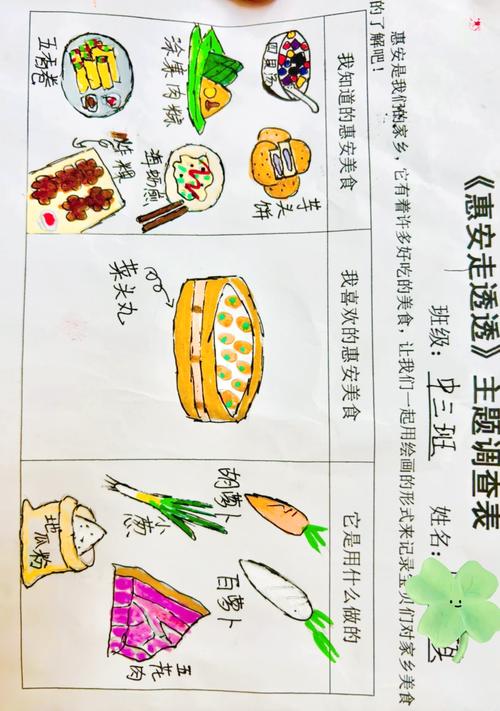 《惠安走透透》主题调查表
班级：中三班 姓名：
惠安是我们的家乡，它有着许多好吃的美食，让我们一起用绘画的形式来记录宝贝们对家乡美食
的了解吧！
我知道的惠安美食
四果汤
芋头饼
海蛎煎
五香卷
炸粿
我喜欢的惠安美食
菜头丸
它是用什么做的
胡萝卜
白萝卜
小葱
五花肉
地瓜粉